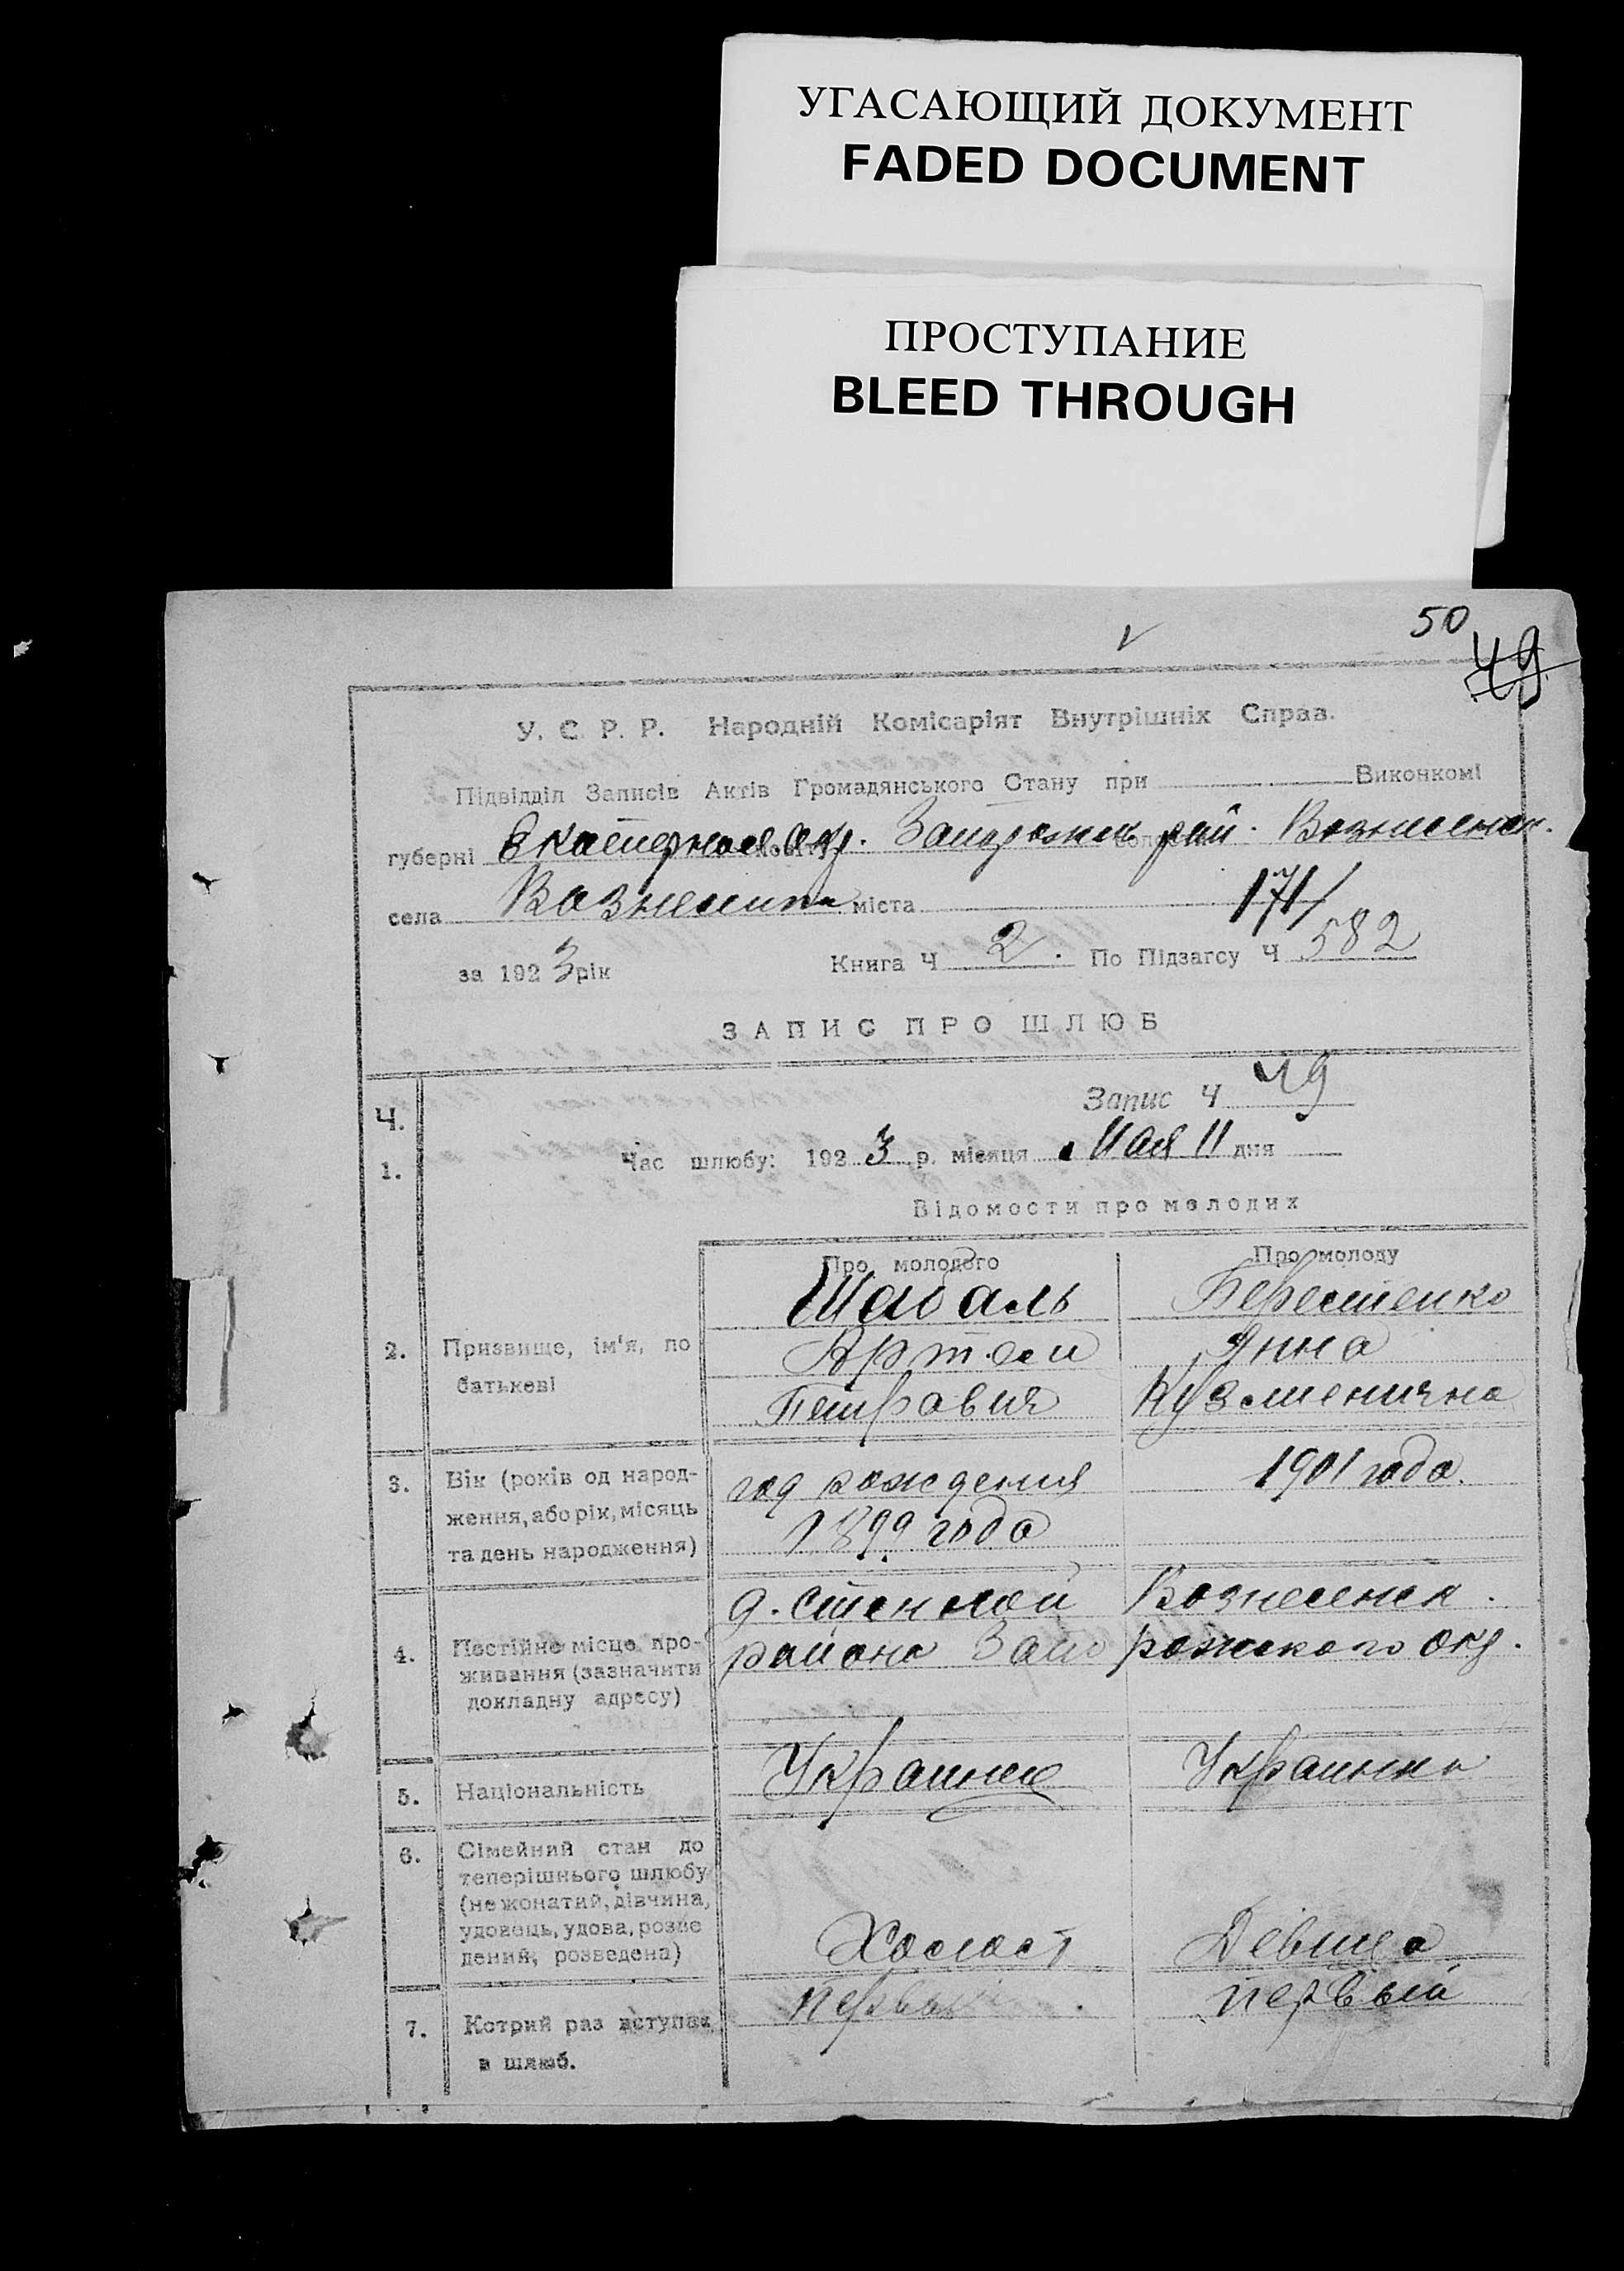 УГАСАЮЩИЙ ДОКУМЕНТ
FADED DOCUMENT
ПРОСТУПАНИЕ
BLEED THROUGH
50
49
У. С. Р. Р. Народній Комісаріят Внутрішніх Справ.
Підвідділ Записів Актів Громадянського Стану при Виконкомі
губерні Екатеринослав. окр. Запорожск рай. Вознесенск.
села міста 171/
за 1923 рік Книга Ч 2. По Підзагсу Ч 582
ЗАПИС ПРО ШЛЮБ
Ч. Запис Ч 49
1. Час шлюбу: 1923 р. місяця Мая 11 дня
Відомости про молодих
Про молодого Про молоду
Шабаль Берестенко
2. Призвище, ім'я, по батькеві Артем Анна
Петрович Кузменична
3. Вік (років од народ-
ження, або рік, місяць
та день народження)
год рождения 1901 года.
1899 года
4. Постійне місце про-
живання (зазначити
докладну адресу)
д. Вознесенск.
района Запорожского окр.
5. Національність Украинец Украинка
6. Сімейний стан до
теперішнього шлюбу
(не жонатий, дівчина,
удовець, удова, розве
дений, розведена)
Холост Девица
7. Котрий раз вступає
в шлюб.
первый первый